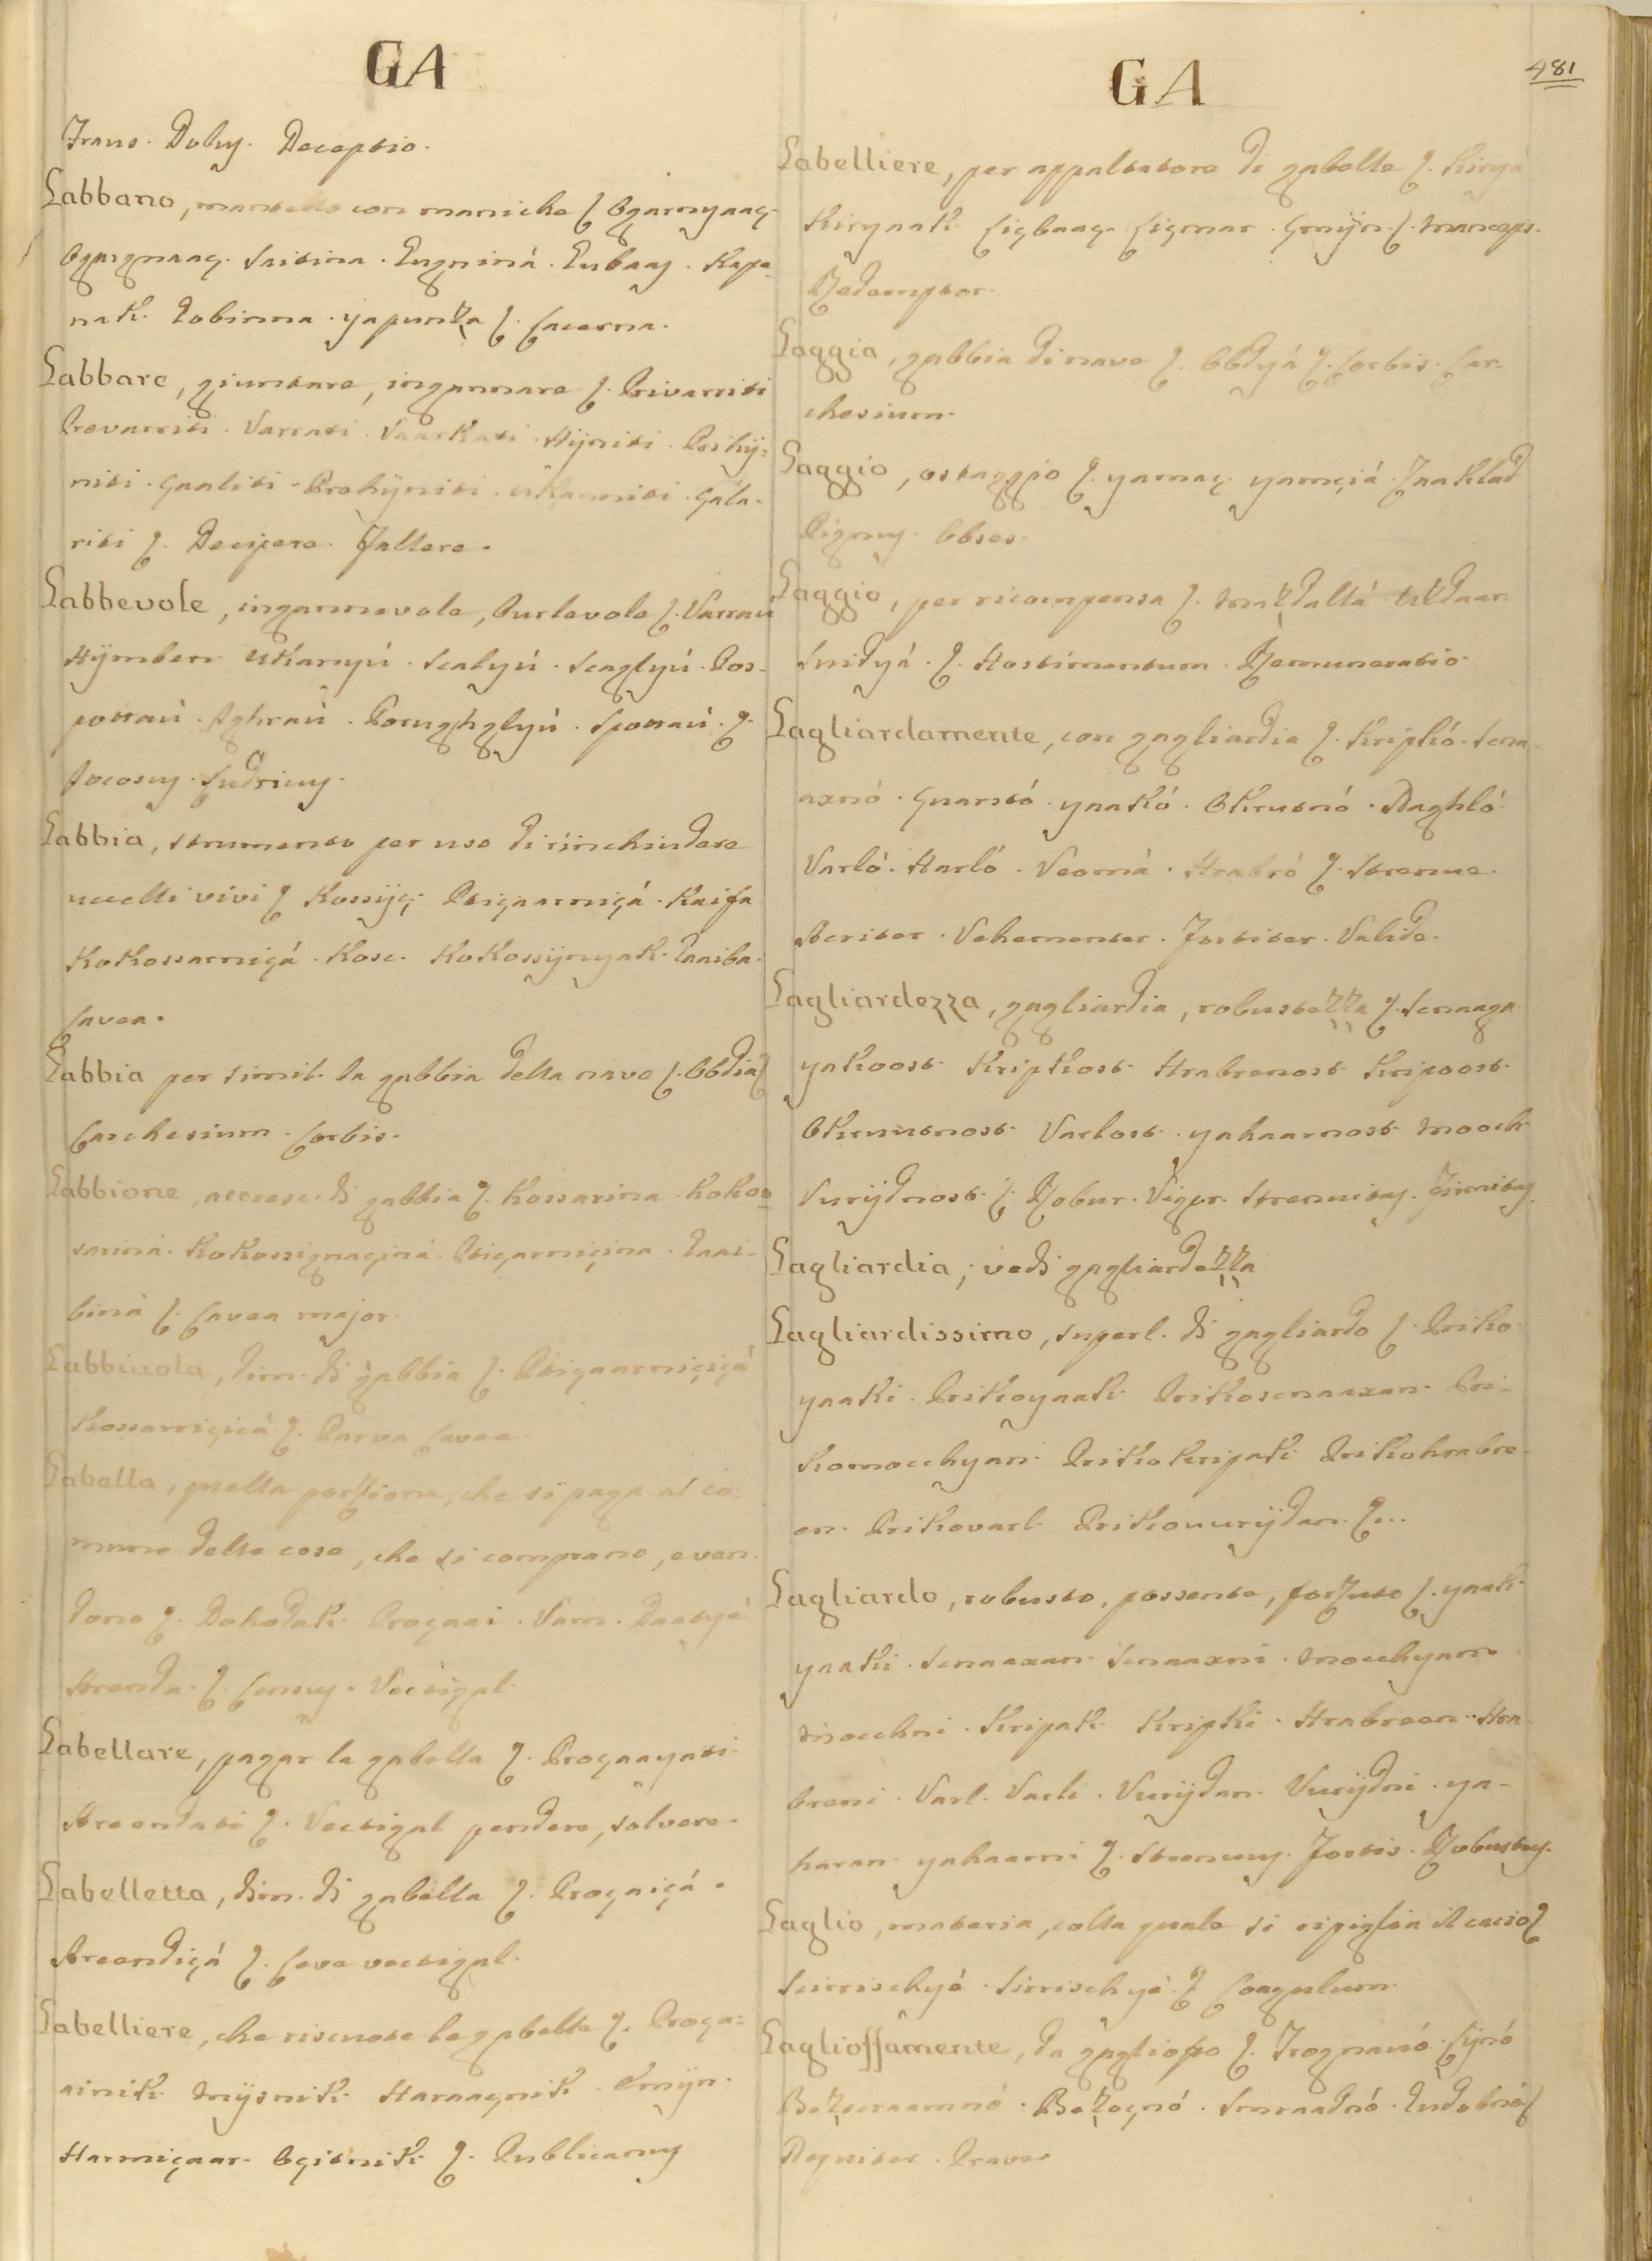 GA
Fraus. Dolus. Deceptio.
Gabbano, mantello con maniche §. Ogarnyaaç.
Ogargnaaç. Saitina. Gugniná. Gubaaç. Kape=
nak. Dobinna. yapunza §. Lacerna.
Gabbare, giuntare, ingannare §. Privarriti
Prevarriti. Varrati. Vaarkati. Hijniti. Prihij=
niti. Gaaliti. Prohijniti. Ukanniti. Gala.
riti §. Decipere. Fallere.
Gabbevole, ingannevole, burlevole §. Varraú
Hijmben. Ukanyú. Scalyú. Scaglyú. Pos=
Jocosus. Ludricus.
Gabbia, strumento per uso di rinchiudere
uccelli vivi § Kossijç. Ptiçaarniçá. Kaifa
Kokossarniçá. Kosc. Kokossijnyak. Gaaiba.
Cavea.
Gabbia per simil. la gabbia della nave §. Obdia §
Carchesium. Corbis.
Gabbione, accresc. di gabbia §. Kossarina. Kokos=
sarina. Kokossignaçina. Ptiçarniçina. Gaai=
bina §. Cavea major.
Gabbiuola, dim. di gabbia §. Ptiçaarniçiçá
Kossarniçiçá §. Parva Cavea
Gabella, quella porzione, che si paga al co=
mune delle cose, che si comprano, e ven=
dono §. Dohodak. Progaai. Vam. Daatyé
Arenda. §. Census. Vectigal.
Gabellare, pagar la gabella §. Progaayati.
Areendati §. Vectigal pendere, solvere.
Gabelletta, dim. di gabella §. Progaiçá.
Areendiçá §. Leve vectigal.
Gabelliere, che riscuote le gabelle §. Proga=
ainik. Mijtnik. Haraaçnik. Emijn.
Harmiçaar. Oçitnik §. Publicanus
GA
481
Gabelliere, per appaltatore di gabelle §. Kirya
Kiryaak. Gigbaaç. Gigmar. Gmijn. §. Manceps.
Redemptor.
Gaggia, gabbia di nave §. Obdyá §. Corbis. Car=
chesium.
Gaggio, ostaggio §. yamaç. yamçiá. Zaaklad
Pignus. Obses.
Gaggio, per ricompensa §. Mazdallá. Uzdaar.
Snidyá. §. Hostimentum. Remuneratio
Gagliardamente, con gagliardia §. Kripkó. Sna=
axnó. Guarstó. yaakó. Okrutnó. Naghló.
Varló. Harló. Veomá. Hrabró §. Strenue.
Acriter. Vehementer. Fortiter. Valide.
Gagliardezza, gagliardia, robustezza §. Snaaga
yakoost. Kripkost. Hrabrenost. Kripoost.
Okrutnost. Varlost. yahaarnost. Mooch
Vurijdnost. §. Robur. Vigor. Strenuitas. Firmitas.
Gagliardia, vedi gagliardezza
Gagliardissimo, superl. di gagliardo §. Priko=
yaaki. Prikoyaak. Prikosnaaxan. Pri=
komocchyan. Prikokripak. Prikohrabre=
en. Prikovarl. Prikovurijdan. §...
Gagliardo, robusto, possente, forzuto §. yaak.
yaaki. Snaaxan. Snaaxni. Mocchyan.
Mocchni. Kripak. Kripki. Hrabreen. Hra=
breni. Varl. Varli. Vurijdan. Vurijdni. ya=
haran. yahaarni §. Strenuus. Fortis. Robustus.
Gaglio, materia, colla quale si ripiglia il cacio §
Siirischyé. Sirischyé. § Coagulum.
Gaglioffamente, da gaglioffo §. Trognavó. Lijnó
Bezsraamnó. Bezoçnó. Smraadnó. Gudobnó §
Nequiter. Prave.